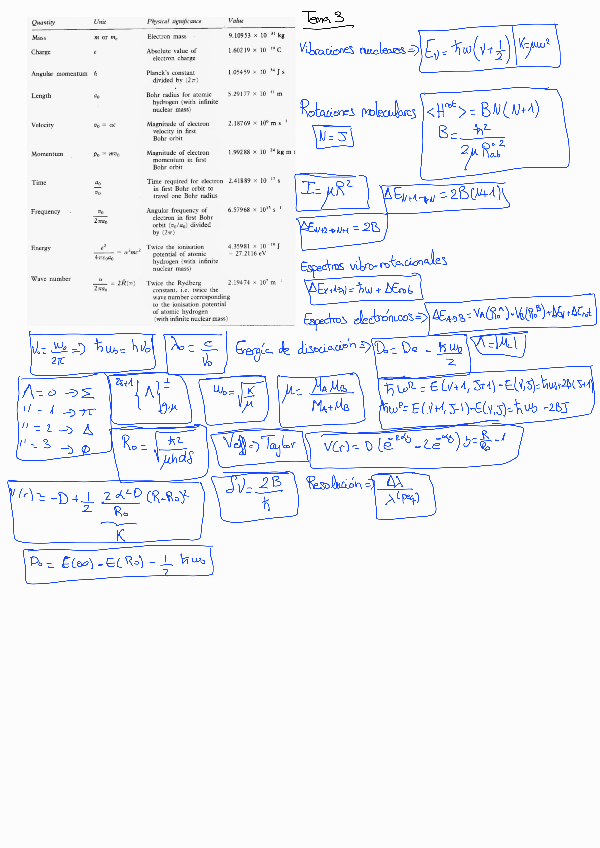 Tema 3
Quantity Unit Physical significance Value
Mass m or mₑ Electron mass 9.10953 × 10⁻³¹ kg
Charge e Absolute value of electron charge 1.60219 × 10⁻¹⁹ C
Angular momentum ħ Planck's constant divided by (2π) 1.05459 × 10⁻³⁴ J s
Length a₀ Bohr radius for atomic hydrogen (with infinite nuclear mass) 5.29177 × 10⁻¹¹ m
Velocity v₀ = αc Magnitude of electron velocity in first Bohr orbit 2.18769 × 10⁶ m s⁻¹
Momentum p₀ = mv₀ Magnitude of electron momentum in first Bohr orbit 1.99288 × 10⁻²⁴ kg m s
Time a₀/v₀ Time required for electron in first Bohr orbit to travel one Bohr radius 2.41889 × 10⁻¹⁷ s
Frequency v₀/2πa₀ Angular frequency of electron in first Bohr orbit (v₀/a₀) divided by (2π) 6.57968 × 10¹⁵ s⁻¹
Energy e²/4πε₀a₀ = α²mc² Twice the ionisation potential of atomic hydrogen (with infinite nuclear mass) 4.35981 × 10⁻¹⁸ J = 27.2116 eV
Wave number α/2πa₀ = 2R̃(∞) Twice the Rydberg constant, i.e. twice the wave number corresponding to the ionisation potential of atomic hydrogen (with infinite nuclear mass) 2.19474 × 10⁷ m⁻¹
Vibraciones nucleares ⇒ Eᵥ = ħω(v + 1/2) K = μω²
Rotaciones moleculares <Hʳᵒᵗ> = BN(N+1)
N = J
B = ħ²/2μR₀²
I = μR² ΔE_N+1→N = 2B(N+1)
ΔE_N+2→N+1 = 2B
Espectros vibro-rotacionales
ΔEv+1→v = ħω + ΔErot
Espectros electrónicos ⇒ ΔE_A→B = V_A(R₀ᴬ) - V_B(R₀ᴮ) + ΔEv + ΔErot
ν₀ = ω₀/2π ⇒ ħω₀ = hν₀ λ₀ = c/ν₀ Energía de disociación ⇒ D₀ = De - ħω₀/2 Λ = |M_L|
Λ = 0 → Σ
" = 1 → π
" = 2 → Δ
" = 3 → Φ
²ˢ⁺¹{Λ}±g,μ ω₀ = √(K/μ) μ = M_A M_B/(M_A + M_B)
ħωᴿ = E(v+1, J+1) - E(v,J) = ħω₀ + 2B(J+1)
ħωᴾ = E(v+1, J-1) - E(v,J) = ħω₀ - 2BJ
R₀ = √(ħ²/μhdδ) Veff ⇒ Taylor V(r) = D(e⁻²ᵅʸ - 2e⁻ᵅʸ) y = R/R₀ - 1
V(r) ≃ -D + 1/2 2α²D/R₀ (R-R₀)²
K
δν = 2B/ħ Resolución ⇒ Δλ/λ(peq)
D₀ = E(∞) - E(R₀) - 1/2 ħω₀